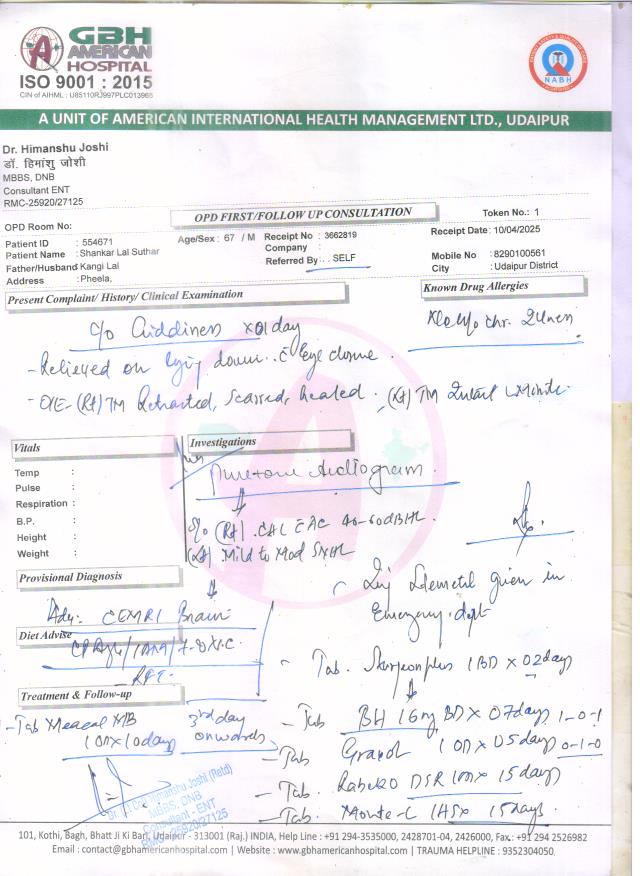 GBH
AMERICAN
HOSPITAL
ISO 9001 : 2015
CIN of AIHML : U85110RJ1997PLC013965
NABH
A UNIT OF AMERICAN INTERNATIONAL HEALTH MANAGEMENT LTD., UDAIPUR
Dr. Himanshu Joshi
डॉ. हिमांशु जोशी
MBBS, DNB
Consultant ENT
RMC-25920/27125
OPD FIRST/FOLLOW UP CONSULTATION
Token No.: 1
OPD Room No:
Patient ID : 554671
Age/Sex : 67 / M
Receipt No : 3662819
Receipt Date : 10/04/2025
Patient Name : Shankar Lal Suthar
Company :
Mobile No : 8290100561
Father/Husband Kangi Lal
Referred By : . SELF
City : Udaipur District
Address : Pheela,
Present Complaint/ History/ Clinical Examination
Known Drug Allergies
c/o Giddiness x01 day
- Relieved on lying down c Eye closure.
- O/E- (Rt) TM Retracted, Scarred, healed. TM Intact
Vitals
Investigations
Temp :
Puretone Audiogram
Pulse :
Respiration :
B.P. :
S/o (Rt) CHL 40-60dBHL
Height :
(Lt) Mild to Mod SNHL
Weight :
Provisional Diagnosis
Inj given in
Emergency dept
Adv: CEMRI Brain
Diet Advise
- Tab. 1BD x 02days
RFT
Treatment & Follow-up
- Tab BH 16mg BD x 07days 1-0-1
- Tab MB
3rd day
1OD x 10days
onwards
- Tab 1OD x 05days 0-1-0
- Tab. DSR 1OD x 15days
- Tab. Monte-L 1HS x 15days
Dr. Himanshu Joshi (Retd)
MBBS, DNB
Consultant - ENT
RMC-25920/27125
101, Kothi, Bagh, Bhatt Ji Ki Bari, Udaipur - 313001 (Raj.) INDIA, Help Line : +91 294-3535000, 2428701-04, 2426000, Fax.: +91 294 2526982
Email : contact@gbhamericanhospital.com | Website : www.gbhamericanhospital.com | TRAUMA HELPLINE : 9352304050